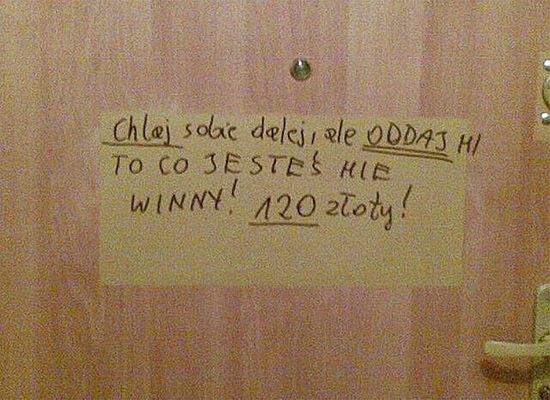 Chlaj sobie dalej, ale ODDAJ MI
TO CO JESTEŚ MIE
WINNY! 120 złoty!